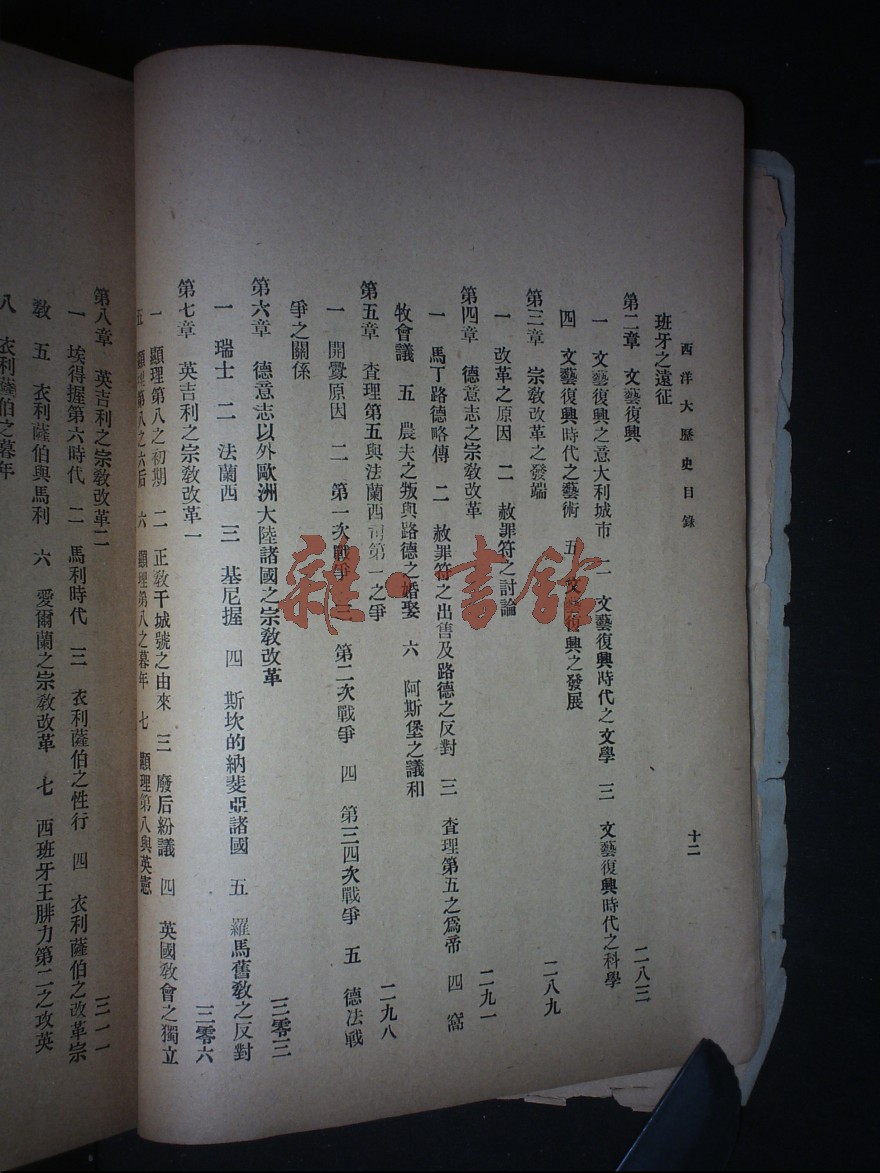 西洋大歷史目錄
十二
班牙之遠征
第二章 文藝復興 二八三
一 文藝復興之意大利城市 二 文藝復興時代之文學 三 文藝復興時代之科學
四 文藝復興時代之藝術 五 文藝復興之發展
第三章 宗敎改革之發端 二八九
一 改革之原因 二 赦罪符之討論
第四章 德意志之宗敎改革 二九一
一 馬丁路德略傳 二 赦罪符之出售及路德之反對 三 查理第五之爲帝 四 窩
牧會議 五 農夫之叛與路德之婚娶 六 阿斯堡之議和
第五章 查理第五與法蘭西司第一之爭 二九八
一 開釁原因 二 第一次戰爭 三 第二次戰爭 四 第三四次戰爭 五 德法戰
爭之關係
第六章 德意志以外歐洲大陸諸國之宗敎改革 三零三
一 瑞士 二 法蘭西 三 基尼握 四 斯坎的納斐亞諸國 五 羅馬舊敎之反對
第七章 英吉利之宗敎改革一 三零六
一 顯理第八之初期 二 正敎干城號之由來 三 廢后紛議 四 英國敎會之獨立
五 顯理第八之六后 六 顯理第八之暮年 七 顯理第八與英憲
第八章 英吉利之宗敎改革二 三一一
一 埃得握第六時代 二 馬利時代 三 衣利薩伯之性行 四 衣利薩伯之改革宗
敎 五 衣利薩伯與馬利 六 愛爾蘭之宗敎改革 七 西班牙王腓力第二之攻英
八 衣利薩伯之暮年
雜·書館